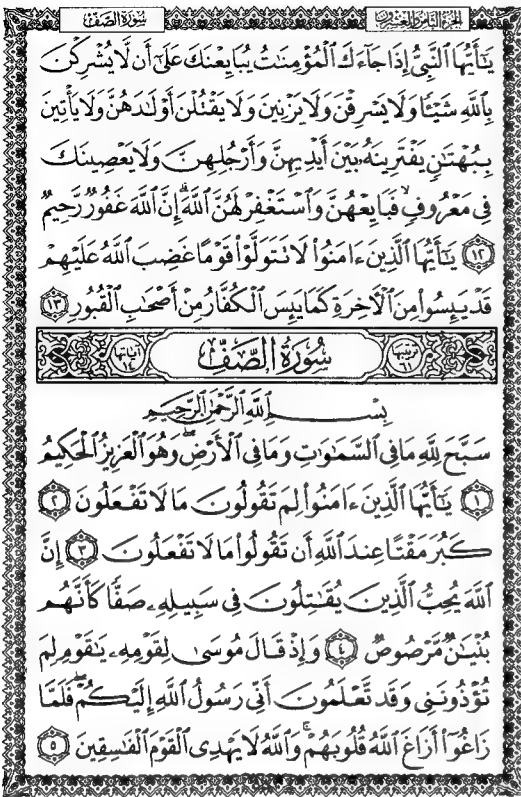 سُورَةُ الصَّفِّ الجزء الثامن والعشرون
يَٰٓأَيُّهَا ٱلنَّبِيُّ إِذَا جَآءَكَ ٱلْمُؤْمِنَٰتُ يُبَايِعْنَكَ عَلَىٰٓ أَن لَّا يُشْرِكْنَ
بِٱللَّهِ شَيْـًٔا وَلَا يَسْرِقْنَ وَلَا يَزْنِينَ وَلَا يَقْتُلْنَ أَوْلَٰدَهُنَّ وَلَا يَأْتِينَ
بِبُهْتَٰنٍ يَفْتَرِينَهُۥ بَيْنَ أَيْدِيهِنَّ وَأَرْجُلِهِنَّ وَلَا يَعْصِينَكَ
فِى مَعْرُوفٍ ۙ فَبَايِعْهُنَّ وَٱسْتَغْفِرْ لَهُنَّ ٱللَّهَ ۖ إِنَّ ٱللَّهَ غَفُورٌ رَّحِيمٌ
١٢ يَٰٓأَيُّهَا ٱلَّذِينَ ءَامَنُوا۟ لَا تَتَوَلَّوْا۟ قَوْمًا غَضِبَ ٱللَّهُ عَلَيْهِمْ
قَدْ يَئِسُوا۟ مِنَ ٱلْءَاخِرَةِ كَمَا يَئِسَ ٱلْكُفَّارُ مِنْ أَصْحَٰبِ ٱلْقُبُورِ ١٣
ترتيبها ٦١ سُورَةُ الصَّفِّ آياتها ١٤
بِسْمِ ٱللَّهِ ٱلرَّحْمَٰنِ ٱلرَّحِيمِ
سَبَّحَ لِلَّهِ مَا فِى ٱلسَّمَٰوَٰتِ وَمَا فِى ٱلْأَرْضِ ۖ وَهُوَ ٱلْعَزِيزُ ٱلْحَكِيمُ
١ يَٰٓأَيُّهَا ٱلَّذِينَ ءَامَنُوا۟ لِمَ تَقُولُونَ مَا لَا تَفْعَلُونَ ٢
كَبُرَ مَقْتًا عِندَ ٱللَّهِ أَن تَقُولُوا۟ مَا لَا تَفْعَلُونَ ٣ إِنَّ
ٱللَّهَ يُحِبُّ ٱلَّذِينَ يُقَٰتِلُونَ فِى سَبِيلِهِۦ صَفًّا كَأَنَّهُم
بُنْيَٰنٌ مَّرْصُوصٌ ٤ وَإِذْ قَالَ مُوسَىٰ لِقَوْمِهِۦ يَٰقَوْمِ لِمَ
تُؤْذُونَنِى وَقَد تَّعْلَمُونَ أَنِّى رَسُولُ ٱللَّهِ إِلَيْكُمْ ۖ فَلَمَّا
زَاغُوٓا۟ أَزَاغَ ٱللَّهُ قُلُوبَهُمْ ۚ وَٱللَّهُ لَا يَهْدِى ٱلْقَوْمَ ٱلْفَٰسِقِينَ ٥